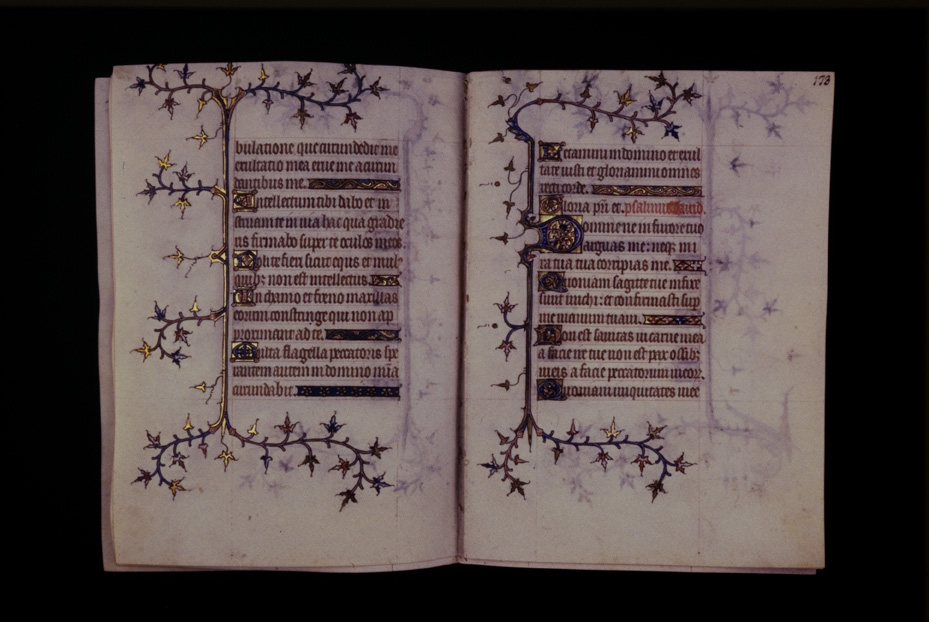 bulatione que circundedit me
exultatio mea erue me a circun
dantibus me.
Intellectum tibi dabo et in
struam te in uia hac qua gradie
ris firmabo super te oculos meos.
Nolite fieri sicut equs et mulꝰ
quibꝫ non est intellectus.
In chamo et freno maxillas
eorum constringe qui non ap
proximant ad te.
Multa flagella peccatoris spe
rantem autem in domino mĩa
circundabit.
173
Letamini in domino et exul
tate iusti et gloriamini omnes
recti corde.
Gloria pr̃i et. psalmus dauid.
Domine ne in furore tuo
arguas me: neqꝫ in i
ra tua corripias me.
Quoniam sagitte tue infixe
sunt michi: et confirmasti sup
me manum tuam.
Non est sanitas in carne mea
a facie ire tue non est pax ossibꝫ
meis a facie peccatorum meorꝝ.
Quoniam iniquitates mee